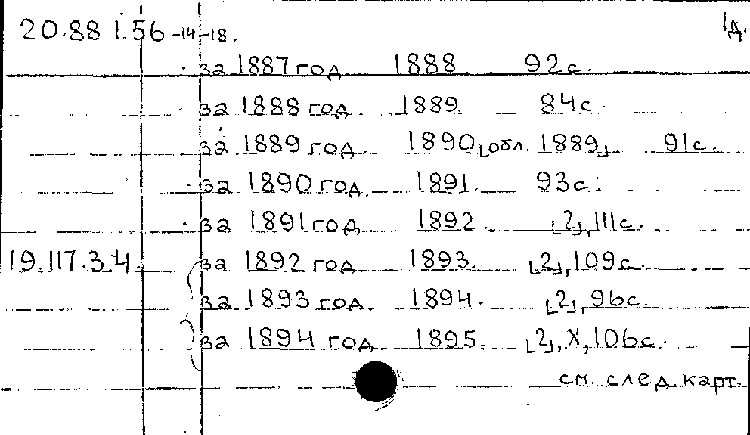 20.88 1.56 -14-18. 1д.
за 1887 год 1888 92 с.
за 1888 год 1889. 84 с.
за 1889 год 1890 [обл. 1889] 91 с.
за 1890 год 1891. 93 с.
за 1891 год 1892 [2], 111 с.
19.117.3.4. за 1892 год 1893. [2], 109 с.
за 1893 год 1894. [2], 96 с.
за 1894 год 1895. [2], X, 106 с.
см. след. карт.